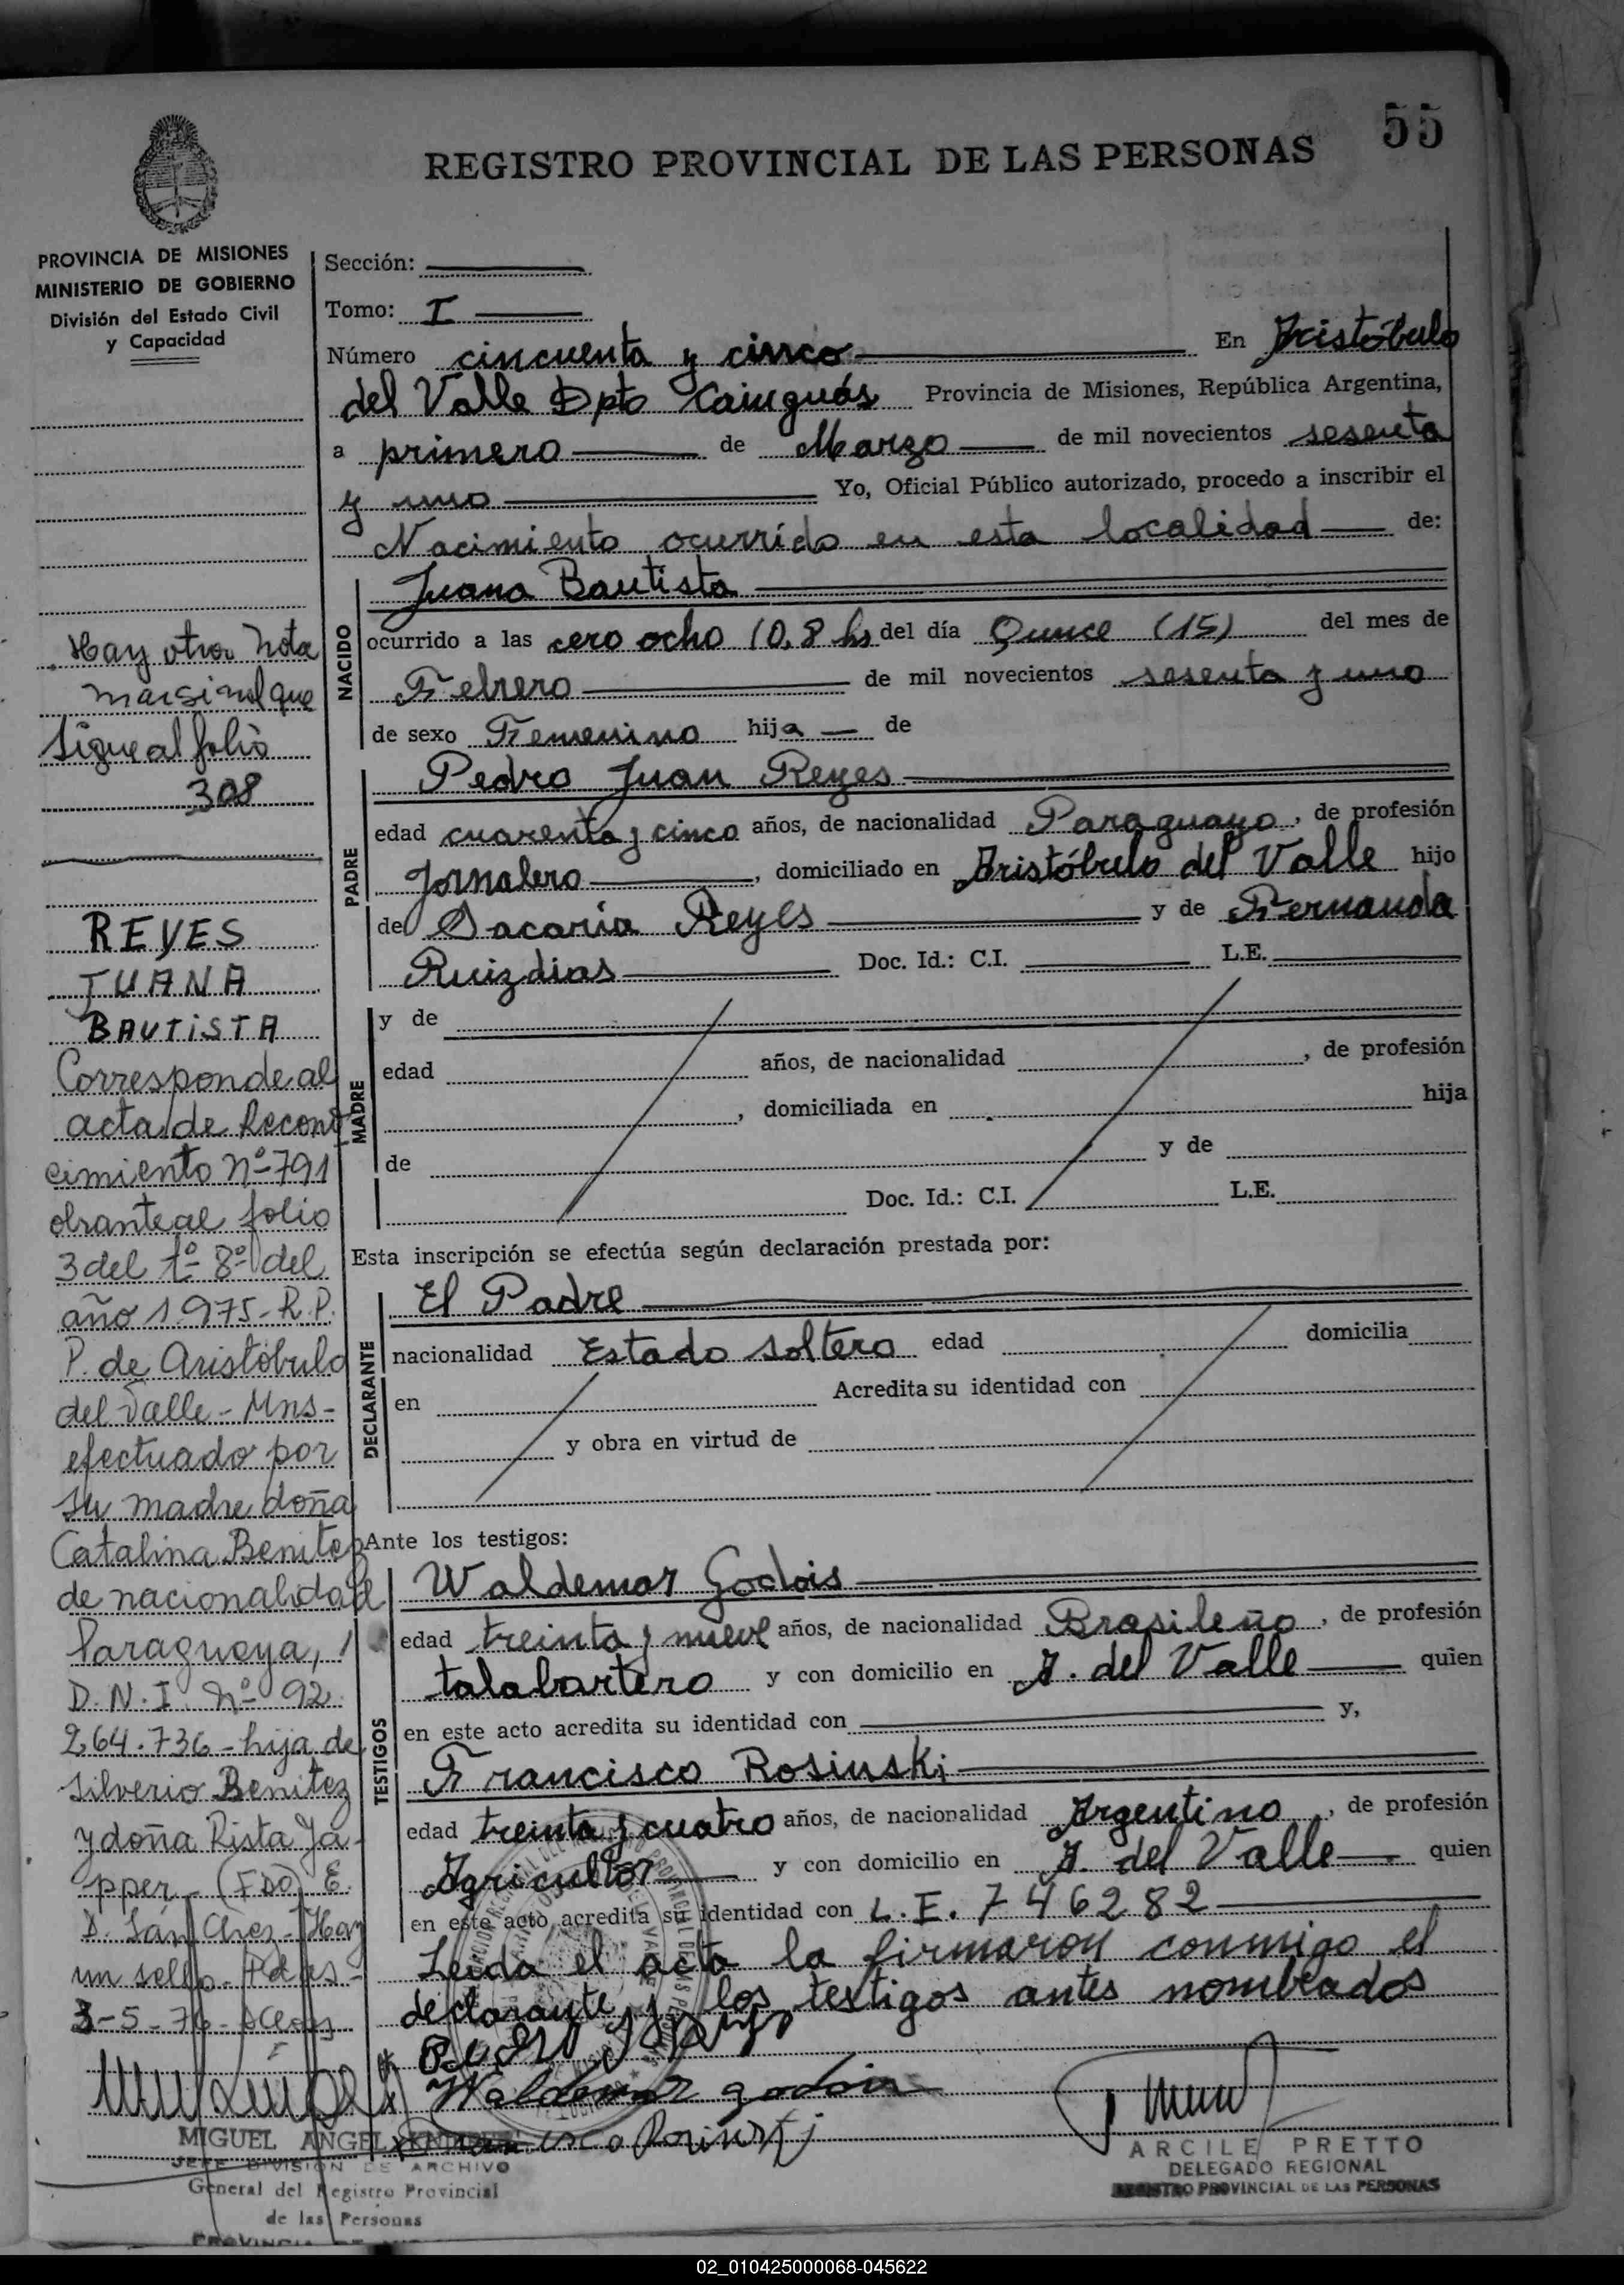 55
REGISTRO PROVINCIAL DE LAS PERSONAS
PROVINCIA DE MISIONES
MINISTERIO DE GOBIERNO
División del Estado Civil
y Capacidad
Sección:
Tomo: I
Número cincuenta y cinco En Aristóbulo
del Valle Dpto Cainguás Provincia de Misiones, República Argentina,
a primero de Marzo de mil novecientos sesenta
y uno Yo, Oficial Público autorizado, procedo a inscribir el
Nacimiento ocurrido en esta localidad de:
NACIDO
Juana Bautista
ocurrido a las cero ocho (0,8 hs del día Quince (15) del mes de
Febrero de mil novecientos sesenta y uno
de sexo Femenino hija de
PADRE
Pedro Juan Reyes
edad cuarenta y cinco años, de nacionalidad Paraguayo, de profesión
Jornalero, domiciliado en Aristóbulo del Valle hijo
de Sacaria Reyes y de Fernanda
Ruizdias Doc. Id.: C.I. L.E.
MADRE
y de
edad años, de nacionalidad , de profesión
, domiciliada en hija
de y de
Doc. Id.: C.I. L.E.
Esta inscripción se efectúa según declaración prestada por:
DECLARANTE
El Padre
nacionalidad Estado soltero edad domicilia
en Acredita su identidad con
y obra en virtud de
Ante los testigos:
TESTIGOS
Waldemar Godois
edad treinta y nueve años, de nacionalidad Brasileño, de profesión
talabartero y con domicilio en A. del Valle quien
en este acto acredita su identidad con y,
Francisco Rosinski
edad treinta y cuatro años, de nacionalidad Argentino, de profesión
Agricultor y con domicilio en A. del Valle quien
en este acto acredita su identidad con L.E. 746282
Leida el acta la firmaron conmigo el
declarante y los testigos antes nombrados
Waldemar godois
Francisco Rosinski
ARCILE PRETTO
DELEGADO REGIONAL
REGISTRO PROVINCIAL DE LAS PERSONAS
Hay otra nota
marginal que
sigue al folio
308
REYES
JUANA
BAUTISTA
Corresponde al
acta de Recono
cimiento nº 791
obrante al folio
3 del tº 8º del
año 1.975- R.P.
P. de Aristóbulo
del Valle - Mns-
efectuado por
su madre doña
Catalina Benitez
de nacionalidad
Paraguaya,
D.N.I. nº 92.
264.736 - hija de
Silverio Benitez
y doña Rista Ja-
pper - (FDO) E.
D. Sán Chez - Hay
un sello - Pdas -
3-5-76-
MIGUEL ANGEL
JEFE DIVISION DE ARCHIVO
General del Registro Provincial
de las Personas
PROVINCIA DE
02_010425000068-045622